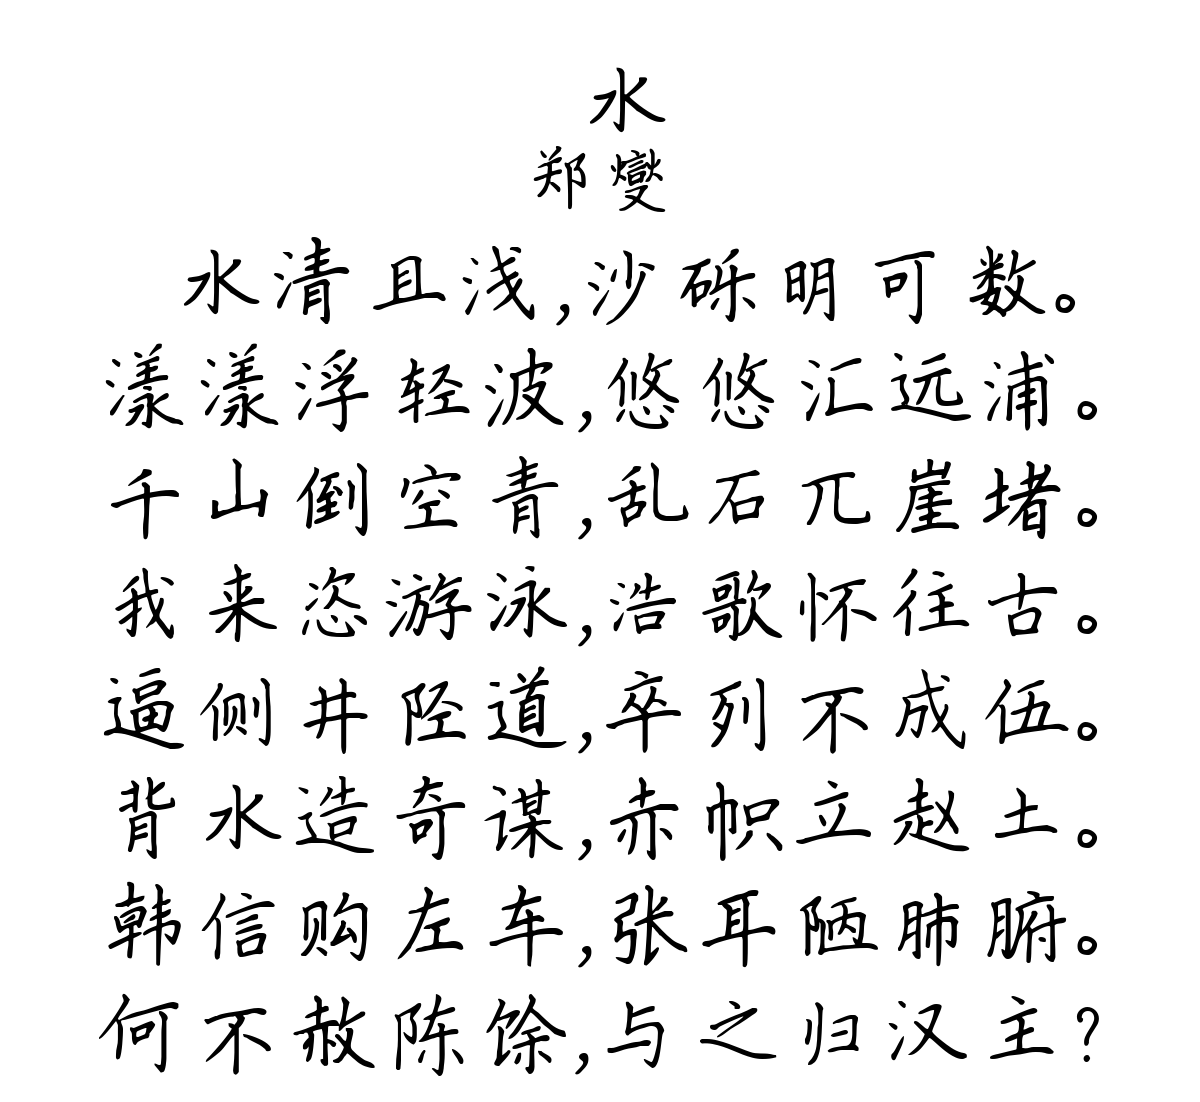 水
郑燮
水清且浅,沙砾明可数。
漾漾浮轻波,悠悠汇远浦。
千山倒空青,乱石兀崖堵。
我来恣游泳,浩歌怀往古。
逼侧井陉道,卒列不成伍。
背水造奇谋,赤帜立赵土。
韩信购左车,张耳陋肺腑。
何不赦陈馀,与之归汉主?